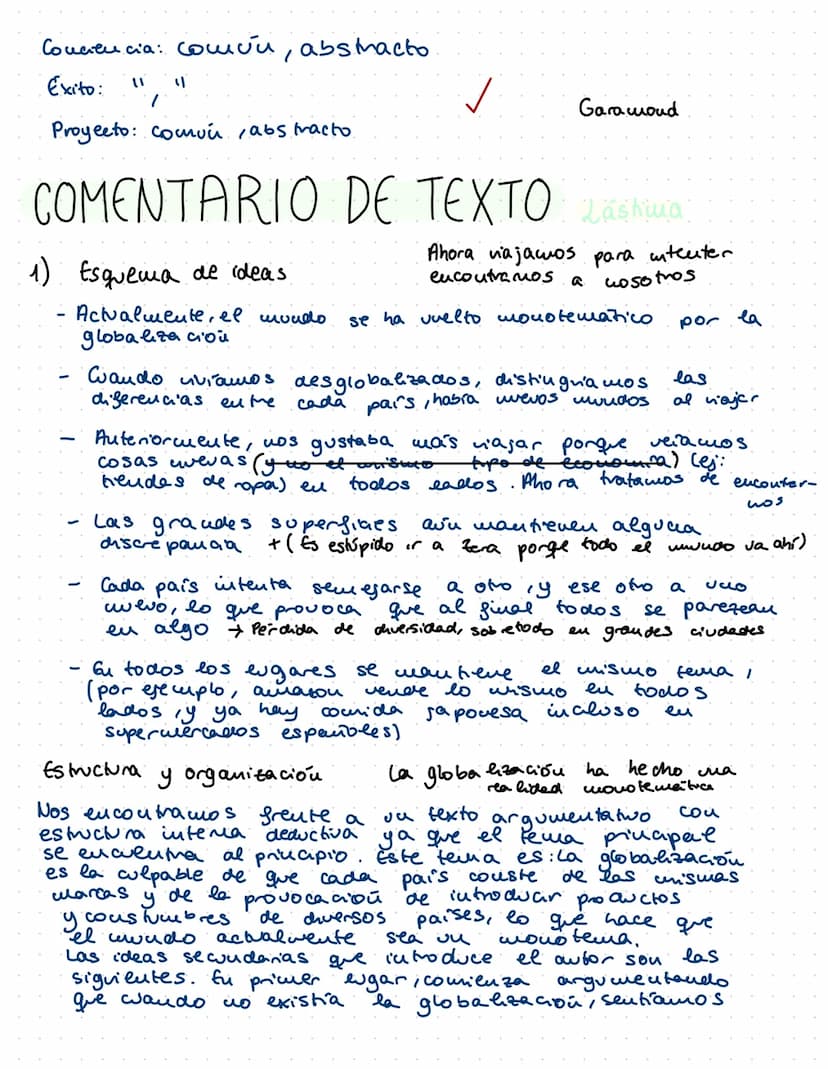 Conciencia: común, abstracto
Éxito: " , "
Proyecto: común, abstracto
Garamond
COMENTARIO DE TEXTO
Lástima
1) Esquema de ideas
Ahora viajamos para intenter
encontrarnos a nosotros
- Actualmente, el mundo se ha vuelto monotemático por la
globalización
- Cuando vivíamos desglobalizados, distinguíamos las
diferencias entre cada país, había nuevos mundos al viajar
- Anteriormente, nos gustaba más viajar porque veíamos
cosas nuevas (y no el mismo tipo de economía) (ej:
tiendas de ropa) en todos lados. Ahora tratamos de encontrar-
nos
- Las grandes superfícies aún mantienen alguna
discrepancia + (Es estúpido ir a Zara porqe todo el mundo va ahí)
- Cada país intenta semejarse a otro, y ese otro a uno
nuevo, lo que provoca que al final todos se parezcan
en algo → Pérdida de diversidad, sobretodo en grandes ciudades
- En todos los lugares se mantiene el mismo tema,
(por ejemplo, amazon vende lo mismo en todos
lados, y ya hay comida japonesa incluso en
supermercados españoles)
Estructura y organización
La globalización ha hecho una
realidad monotemática
Nos encontramos frente a un texto argumentativo con
estructura interna deductiva ya que el tema principal
se encuentra al principio. Este tema es: la globalización
es la culpable de que cada país conste de las mismas
marcas y de la provocación de introducir productos
y construmbres de diversos países, lo que hace que
el mundo actualmente sea un monotema.
Las ideas secundarias que introduce el autor son las
siguientes. En primer lugar, comienza argumentando
que cuando no existía la globalización, sentíamos